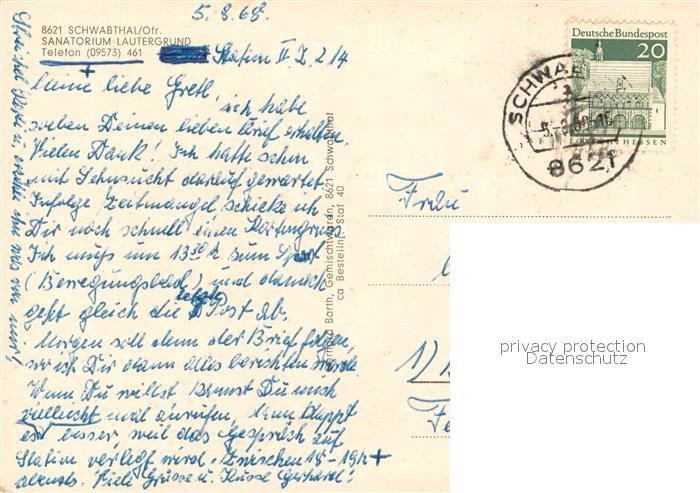 5.8.68.
8621 SCHWABTHAL/Ofr.
SANATORIUM LAUTERGRUND
Telefon (09573) 461
Station II. Z. 214
Meine liebe Gretl,
ich habe
soeben Deinen lieben Brief erhalten.
Vielen Dank! Ich hatte schon
mit Sehnsucht darauf gewartet.
Infolge Zeitmangel schicke ich
Dir noch schnell einen Kartengruss
Ich muss um 13⁰⁰ h zum Sport
(Bewegungsbad) und danach
geht gleich die letzte Post ab.
Morgen soll dann der Brief folgen,
wo ich Dir dann alles berichten werde.
Wenn Du willst kannst Du mich
vielleicht mal anrufen, dann klappt
es besser, weil das Gespräch auf
Station verlegt wird. Zwischen 18-19h +
abends. Viele Grüsse u. Küsse Gerhard!
Gerhard Barth, Gemischtwaren, 8621 Schwabthal
ca Bestellnr. Staf 40
Deutsche Bundespost
20
LORSCH/HESSEN
SCHWAB
8621
Frau
1)
privacy protection
Datenschutz